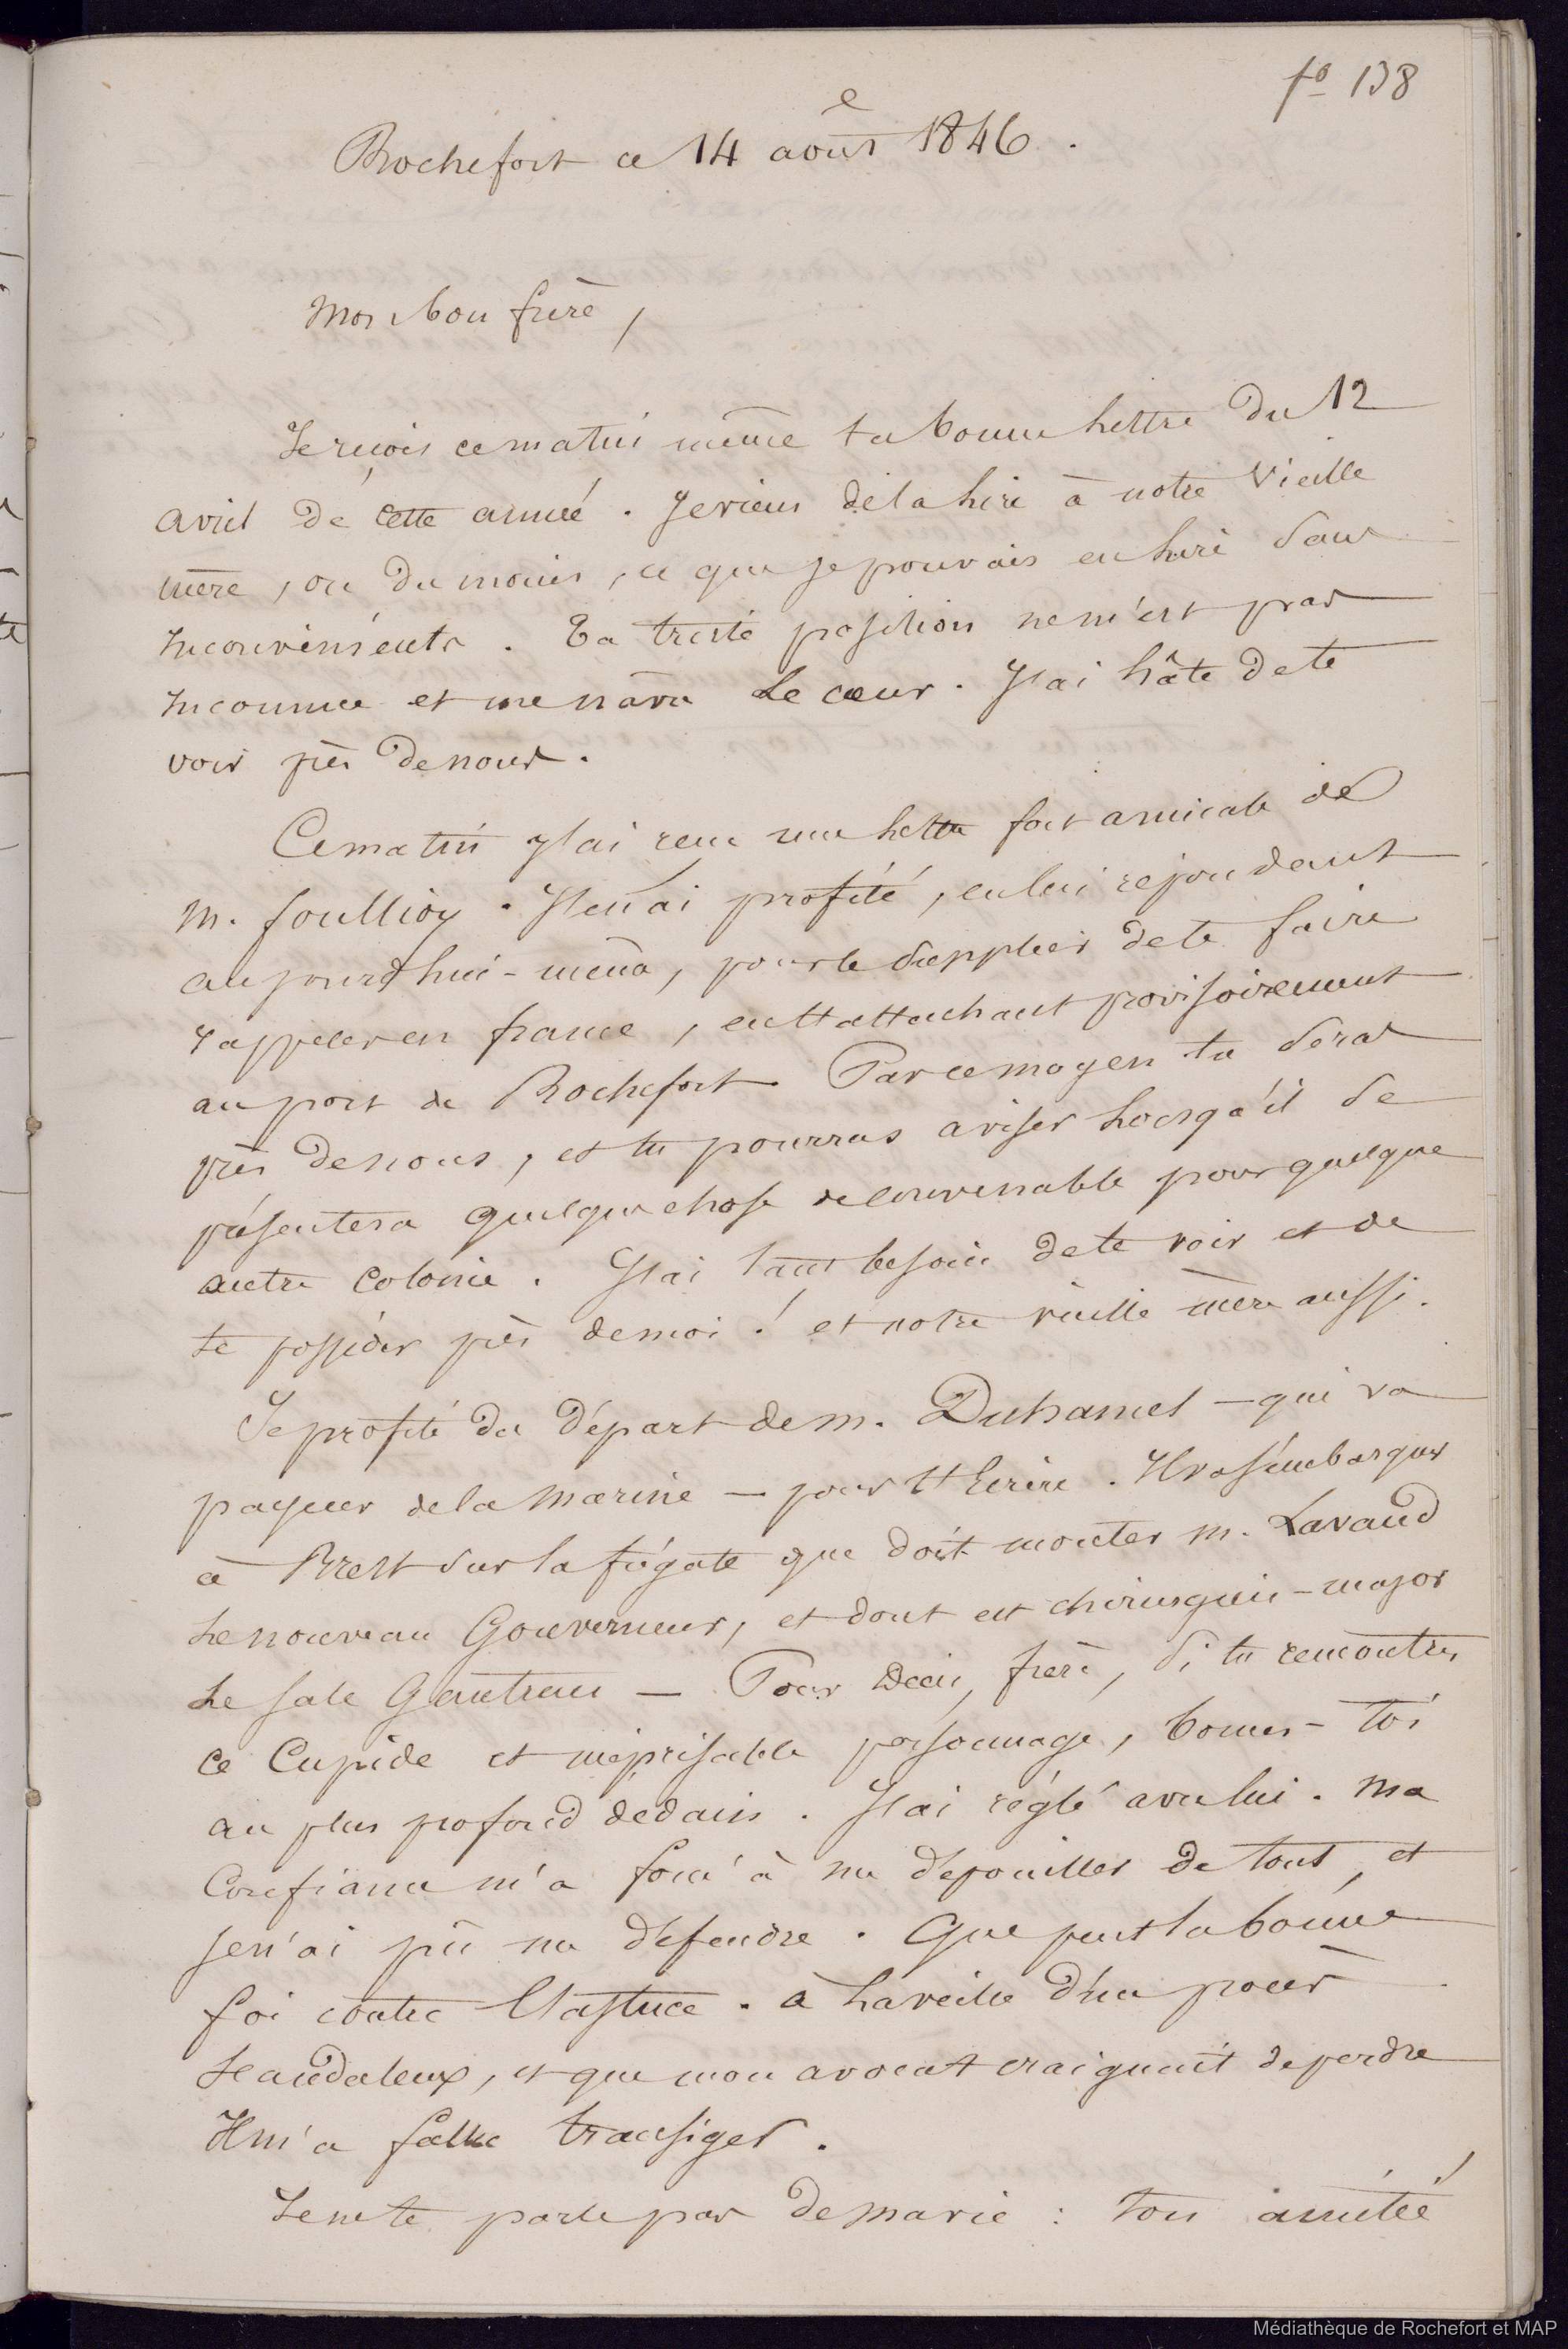 fo 138
Rochefort ce 14 août 1846.
Mon bon frère,
Je reçois ce matin même ta bonne Lettre du 12
avril de cette année. Je viens de la lire à notre vieille
mère, ou du moins, ce que je pouvais en lire sans
inconvénients. Ta triste position ne m'est pas
inconnue et me navre le cœur. J'ai hâte de te
voir près de nous.
Ce matin j'ai reçu une lettre fort amicale de
M. foullioy. J'en ai profité, en lui repondant
aujourd'hui-même, pour le supplier de te faire
rappeler en france, en t'attachant provisoirement
au port de Rochefort. Par ce moyen tu seras
près de nous, et tu pourras aviser lorsqu'il se
présentera quelque chose de convenable pour quelque
autre colonie. J'ai tant besoin de te voir et de
te posséder près de moi ! et notre vieille mère aussi.
Je profite du départ de M. Duhamel - qui va
payeur de la marine - pour t'Ecrire. Il va s'embarquer
à Brest sur la frégate que doit monter M. Lavaud
le nouveau Gouverneur, et dont est chirurgien-major
le sale Gautreau - Pour Dieu, frère, si tu rencontres
ce Cupide et méprisable personnage, bornes-toi
au plus profond dédain. J'ai réglé avec lui. Ma
Confiance m'a forcé à me dépouiller de tout, et
je n'ai pû me défendre. Que peut la bonne
foi contre l'astuce. à la veille d'un procès
scandaleux, et que mon avocat craignait de perdre
Il m'a fallu transiger.
Je ne te parle pas de Marie : ton amitié
Médiathèque de Rochefort et MAP